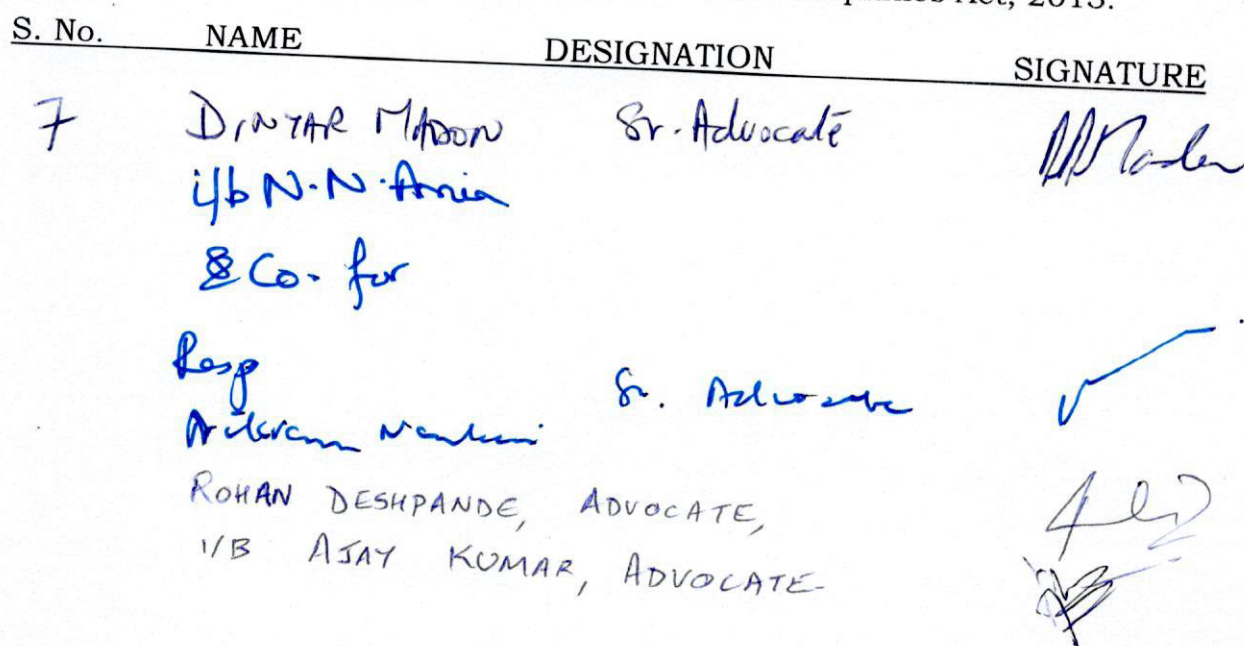 Act, 2013.
S. No. NAME DESIGNATION SIGNATURE
7 DINYAR MADON Sr. Advocate
i/b N. N.
& Co. for
Resp
Sr. Advocate
ROHAN DESHPANDE, ADVOCATE,
I/B AJAY KUMAR, ADVOCATE